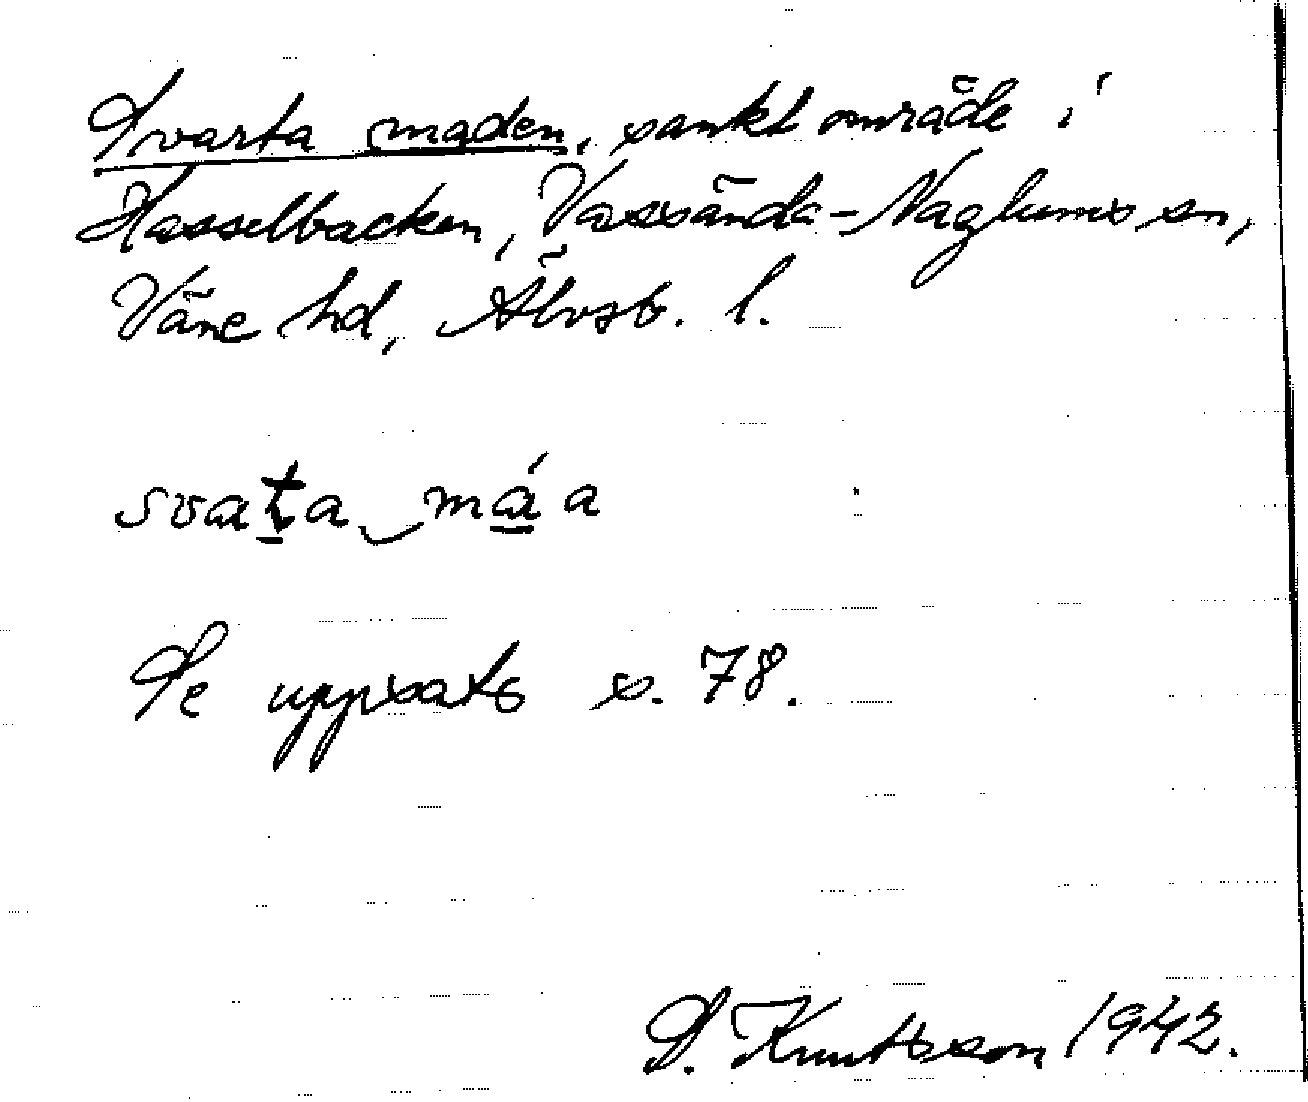 Svarta maden, sankt område i
Hasselbacken, Vassända-Naglums sn,
Väne hd, Älvsb. l.
svaṯa‿má̱a
Se uppsats s. 78.
S. Knutsson 1942.